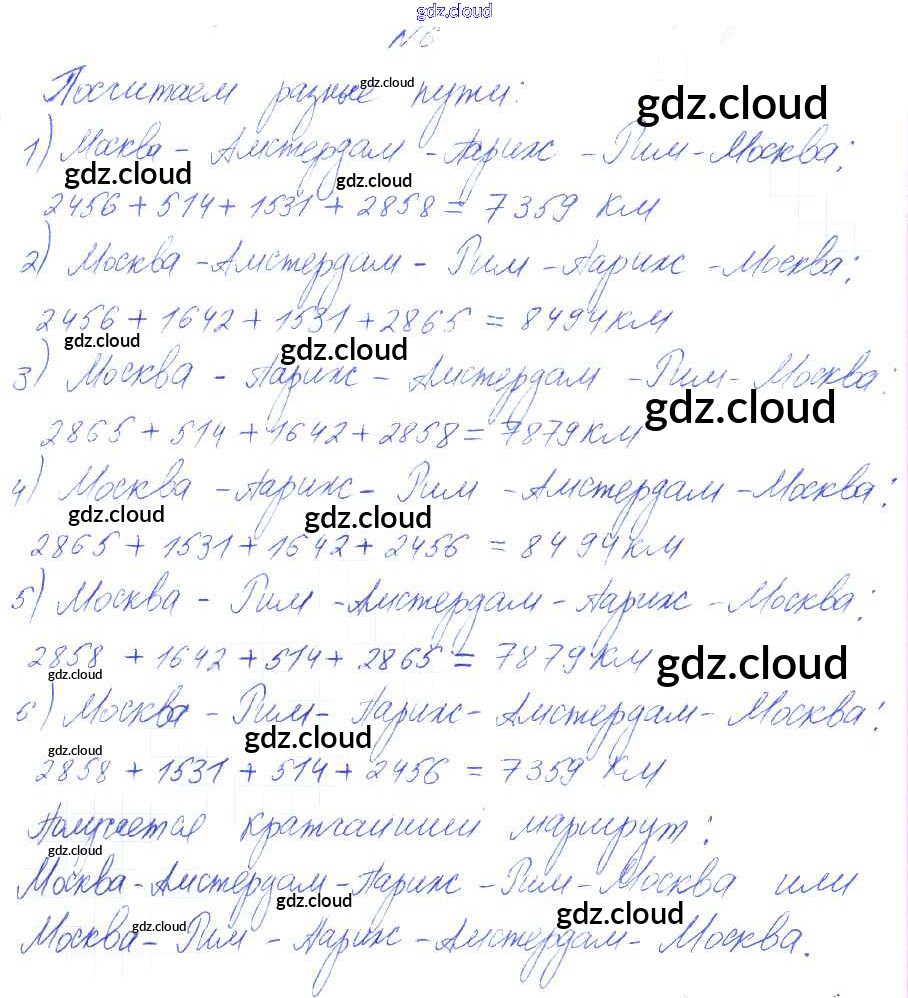 gdz.cloud
№6
Посчитаем разные пути:
gdz.cloud
gdz.cloud
1) Москва - Амстердам - Париж - Рим - Москва:
gdz.cloud
gdz.cloud
2456 + 514 + 1531 + 2858 = 7359 км
2) Москва - Амстердам - Рим - Париж - Москва:
2456 + 1642 + 1531 + 2865 = 8494 км
gdz.cloud
gdz.cloud
3) Москва - Париж - Амстердам - Рим - Москва:
gdz.cloud
2865 + 514 + 1642 + 2858 = 7879 км
4) Москва - Париж - Рим - Амстердам - Москва:
gdz.cloud
gdz.cloud
2865 + 1531 + 1642 + 2456 = 8494 км
5) Москва - Рим - Амстердам - Париж - Москва:
2858 + 1642 + 514 + 2865 = 7879 км
gdz.cloud
gdz.cloud
6) Москва - Рим - Париж - Амстердам - Москва:
gdz.cloud
gdz.cloud
2858 + 1531 + 514 + 2456 = 7359 км
Получается кратчайший маршрут:
gdz.cloud
Москва - Амстердам - Париж - Рим - Москва или
gdz.cloud
gdz.cloud
gdz.cloud
Москва - Рим - Париж - Амстердам - Москва.